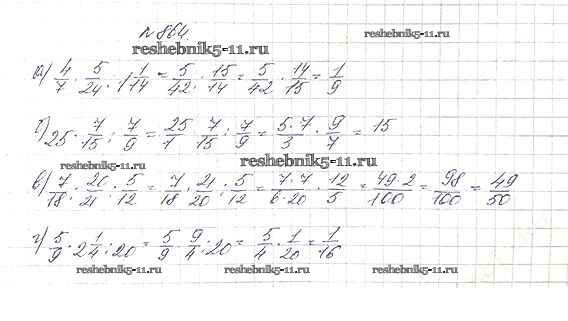 № 864.
reshebnik5-11.ru reshebnik5-11.ru
а) 4/7 · 5/24 : 1 1/14 = 5/42 : 15/14 = 5/42 · 14/15 = 1/9
б) 25 · 7/15 : 7/9 = 25/1 · 7/15 : 7/9 = (5·7)/3 · 9/7 = 15
reshebnik5-11.ru reshebnik5-11.ru
в) 7/18 : 20/21 : 5/12 = 7/18 · 21/20 : 5/12 = (7·7)/(6·20) · 12/5 = (49·2)/100 = 98/100 = 49/50
г) 5/9 · 2 1/4 : 20 = 5/9 · 9/4 : 20 = 5/4 · 1/20 = 1/16
reshebnik5-11.ru reshebnik5-11.ru reshebnik5-11.ru